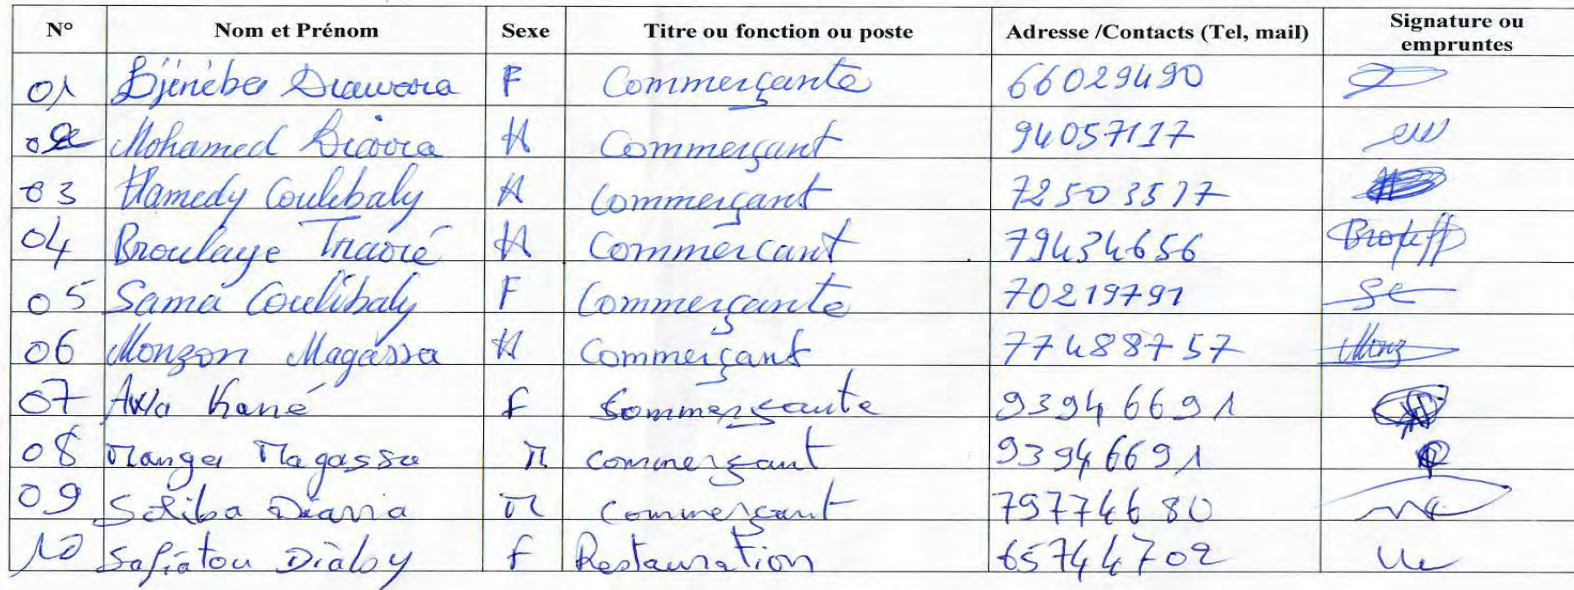 N° Nom et Prénom Sexe Titre ou fonction ou poste Adresse /Contacts (Tel, mail) Signature ou
empruntes
01 Djénéba Diawara F Commerçante 66029490
02 Mohamed H Commerçant 94057117
03 Hamedy Coulibaly H Commerçant 72503517
04 Broulaye Traoré H Commercant 79434656
05 Sama Coulibaly F Commerçante 70219791
06 Monzon Magassa H Commerçant 77488757
07 Kané F Commerçante 93946691
08 Magassa M commerçant 93946691
09 M Commerçant 79774680
10 Safiatou Diaby F Restauration 65744702